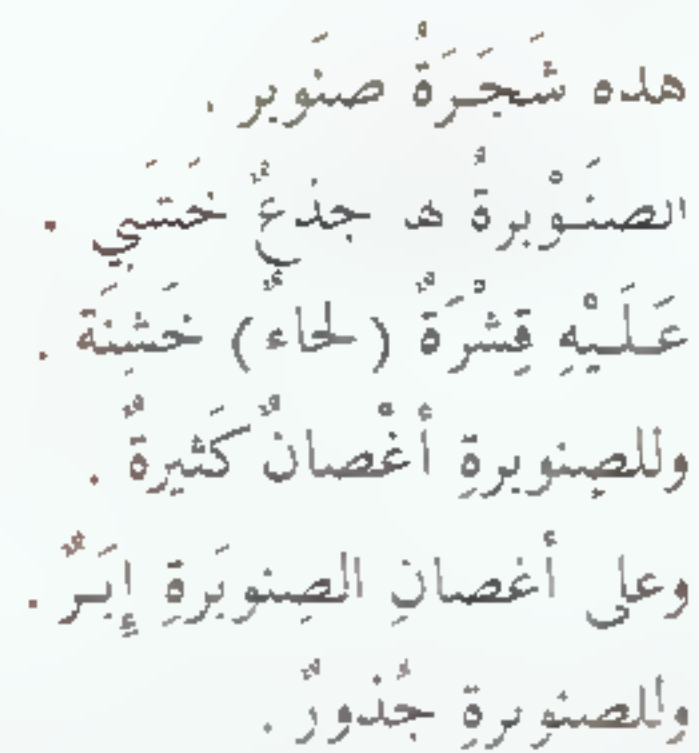 هذه شَجَرَةُ صنَوبر .
الصنَوْبرةُ لها جذعٌ خَشَبي .
عَلَيْهِ قِشْرَةٌ (لحاءٌ) خَشِنَة .
وللصِنوبرةِ أغْصانٌ كَثيرةٌ .
وعلى أغصانِ الصِنوبَرةِ إبَرٌ .
وللصنوبرةِ جُذورٌ .